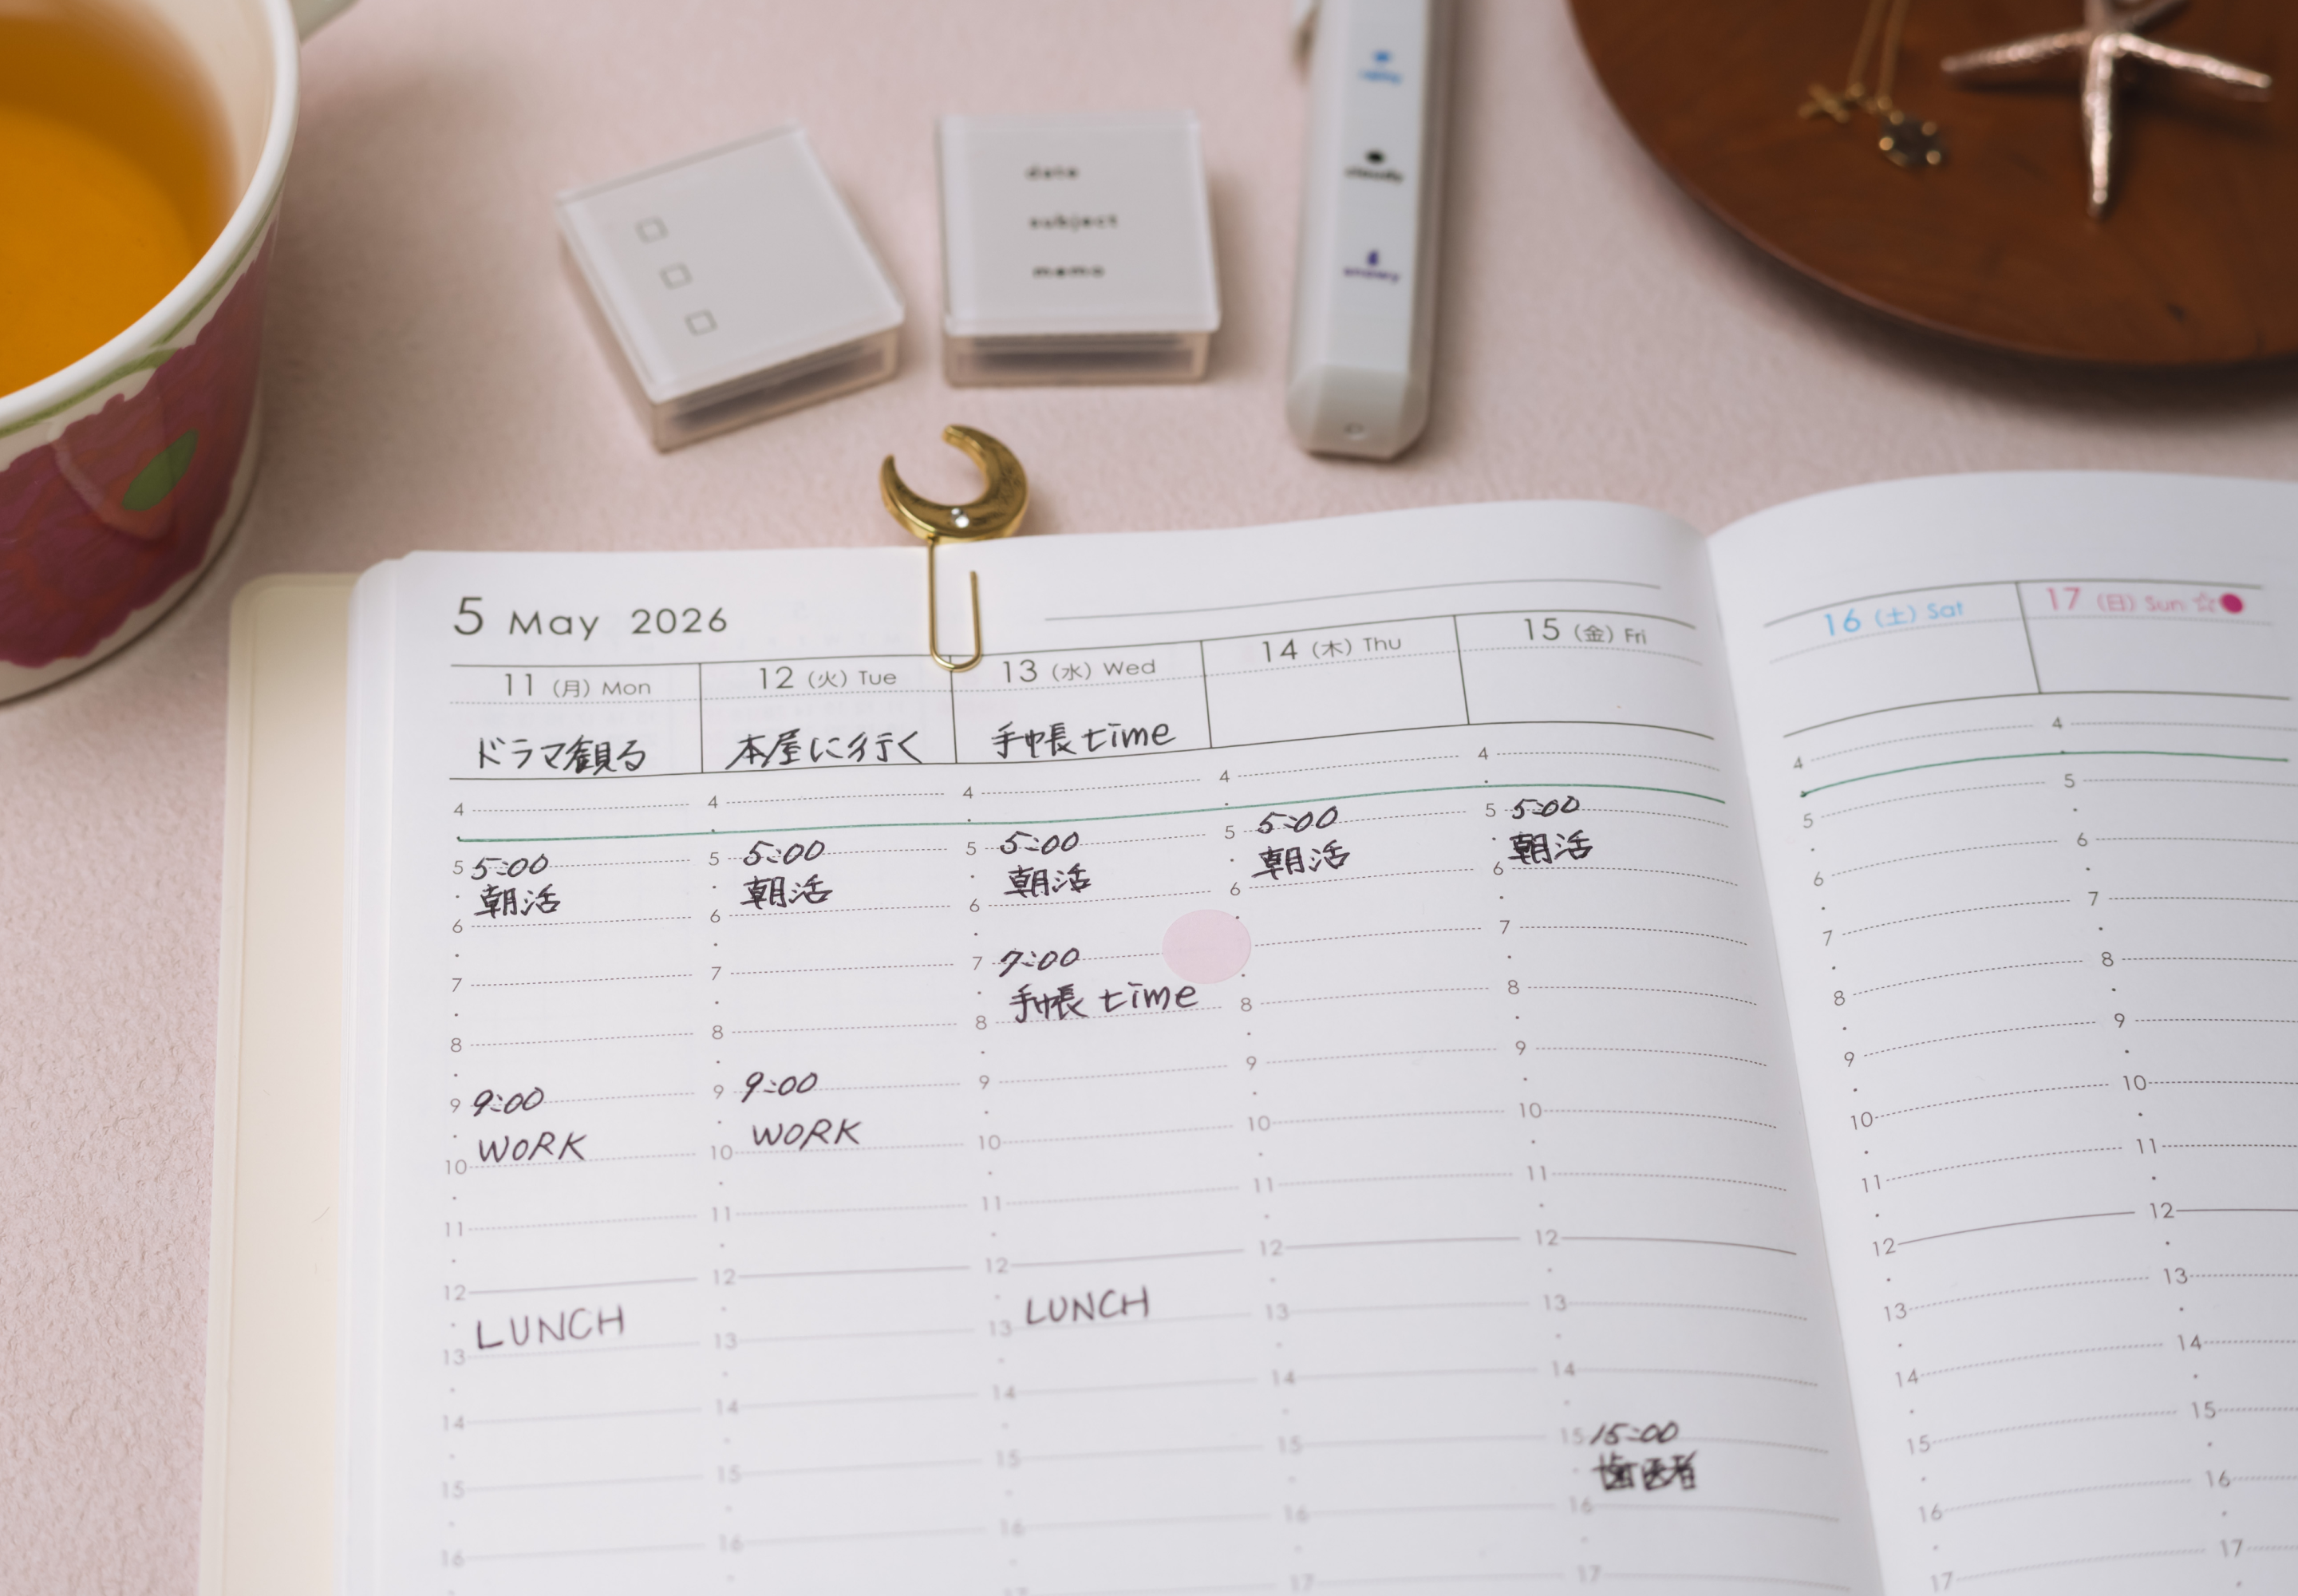 date
subject
memo
cloudy
5 May 2026
11 (月) Mon
12 (火) Tue
13 (水) Wed
14 (木) Thu
15 (金) Fri
16 (土) Sat
17 (日) Sun ☆●
ドラマ観る
本屋に行く
手帳time
4 4 4 4 4 4 4
5 5:00 5 5:00 5 5:00 5 5:00 5 5:00 5 5
朝活 朝活 朝活 朝活 朝活
6 6 6 6 6 6 6
7 7 7 7:00 7 7 7
手帳time
8 8 8 8 8 8 8
9 9:00 9 9:00 9 9 9 9 9
WORK WORK
10 10 10 10 10 10 10
11 11 11 11 11 11 11
12 12 12 12 12 12 12
LUNCH LUNCH
13 13 13 13 13 13 13
14 14 14 14 14 14 14
15 15 15 15 15 15:00 15 15
歯医者
16 16 16 16 16 16 16
17 17 17 17 17